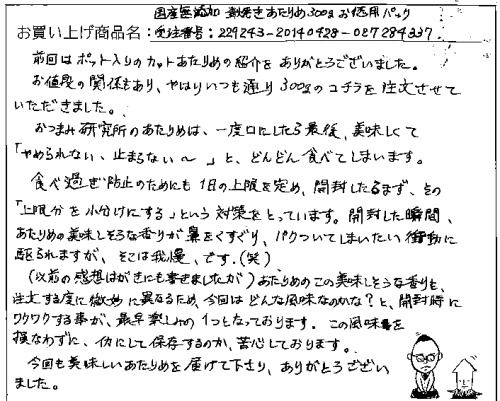 国産無添加 熟焼きあたりめ300g お徳用パック
お買い上げ商品名：受注番号：229243-20140428-027284337
前回はポット入りのカットあたりめの紹介をありがとうございました。
お値段の関係もあり、やはりいつも通り300gのコチラを注文させて
いただきました。
おつまみ研究所のあたりめは、一度口にしたら最後、美味しくて
「やめられない、止まらない～」と、どんどん食べてしまいます。
食べ過ぎ防止のためにも1日の上限を定め、開封したらまず、その
「上限分を小分けにする」という対策をとっています。開封した瞬間、
あたりめの美味しそうな香りが鼻をくすぐり、パクついてしまいたい衝動に
駆られますが、そこは我慢、です。(笑)
(以前の感想はがきにも書きましたが)あたりめのこの美味しそうな香りも、
注文する度に微妙に異なるため、今回はどんな風味なのかな？と、開封時に
ワクワクする事が、最早楽しみの1つとなっております。この風味を
損なわずに、いかにして保存するのか、苦心しております。
今回も美味しいあたりめを届けて下さり、ありがとうござい
ました。